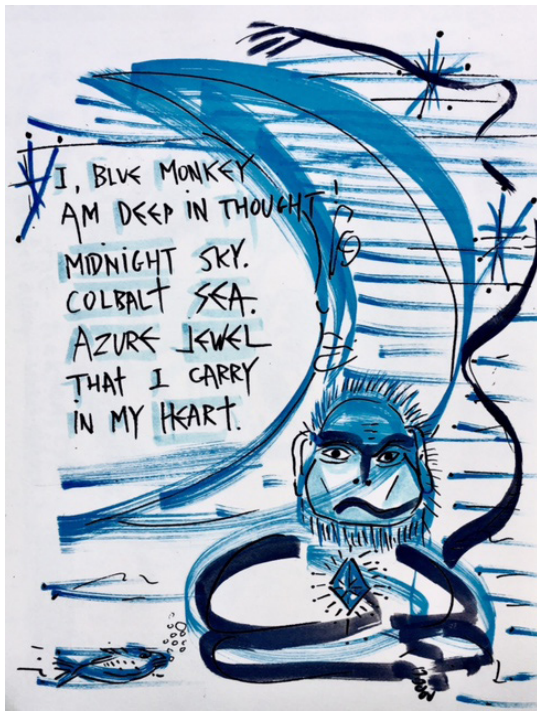 I, BLUE MONKEY
AM DEEP IN THOUGHT
MIDNIGHT SKY.
COLBALT SEA.
AZURE JEWEL
THAT I CARRY
IN MY HEART.